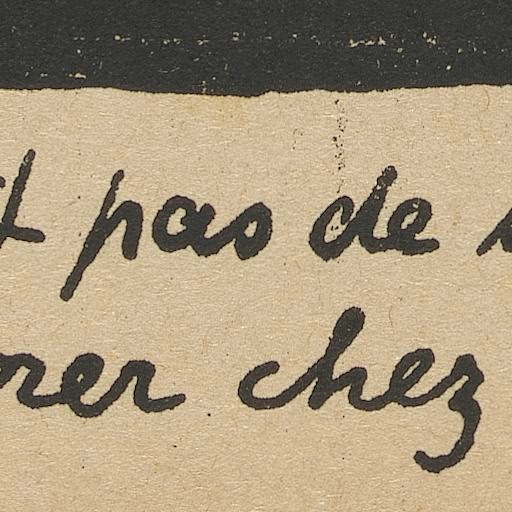 t pas de
rer chez